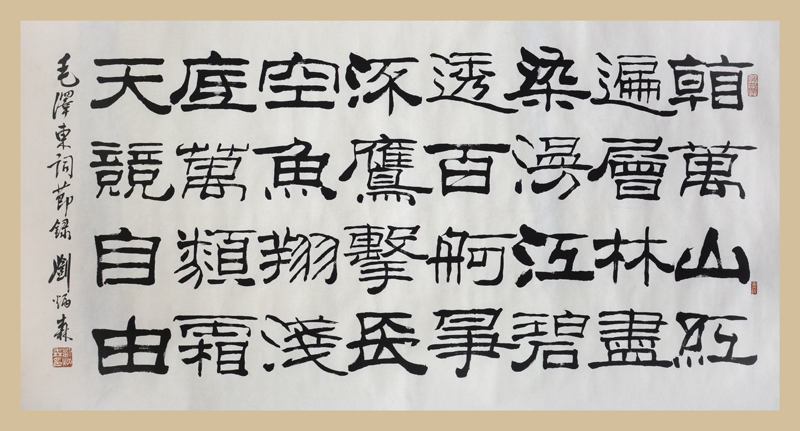 看萬山紅
遍層林盡
染漫江碧
透百舸爭
流鷹擊長
空魚翔淺
底萬類霜
天競自由
毛澤東詞節録 劉炳森